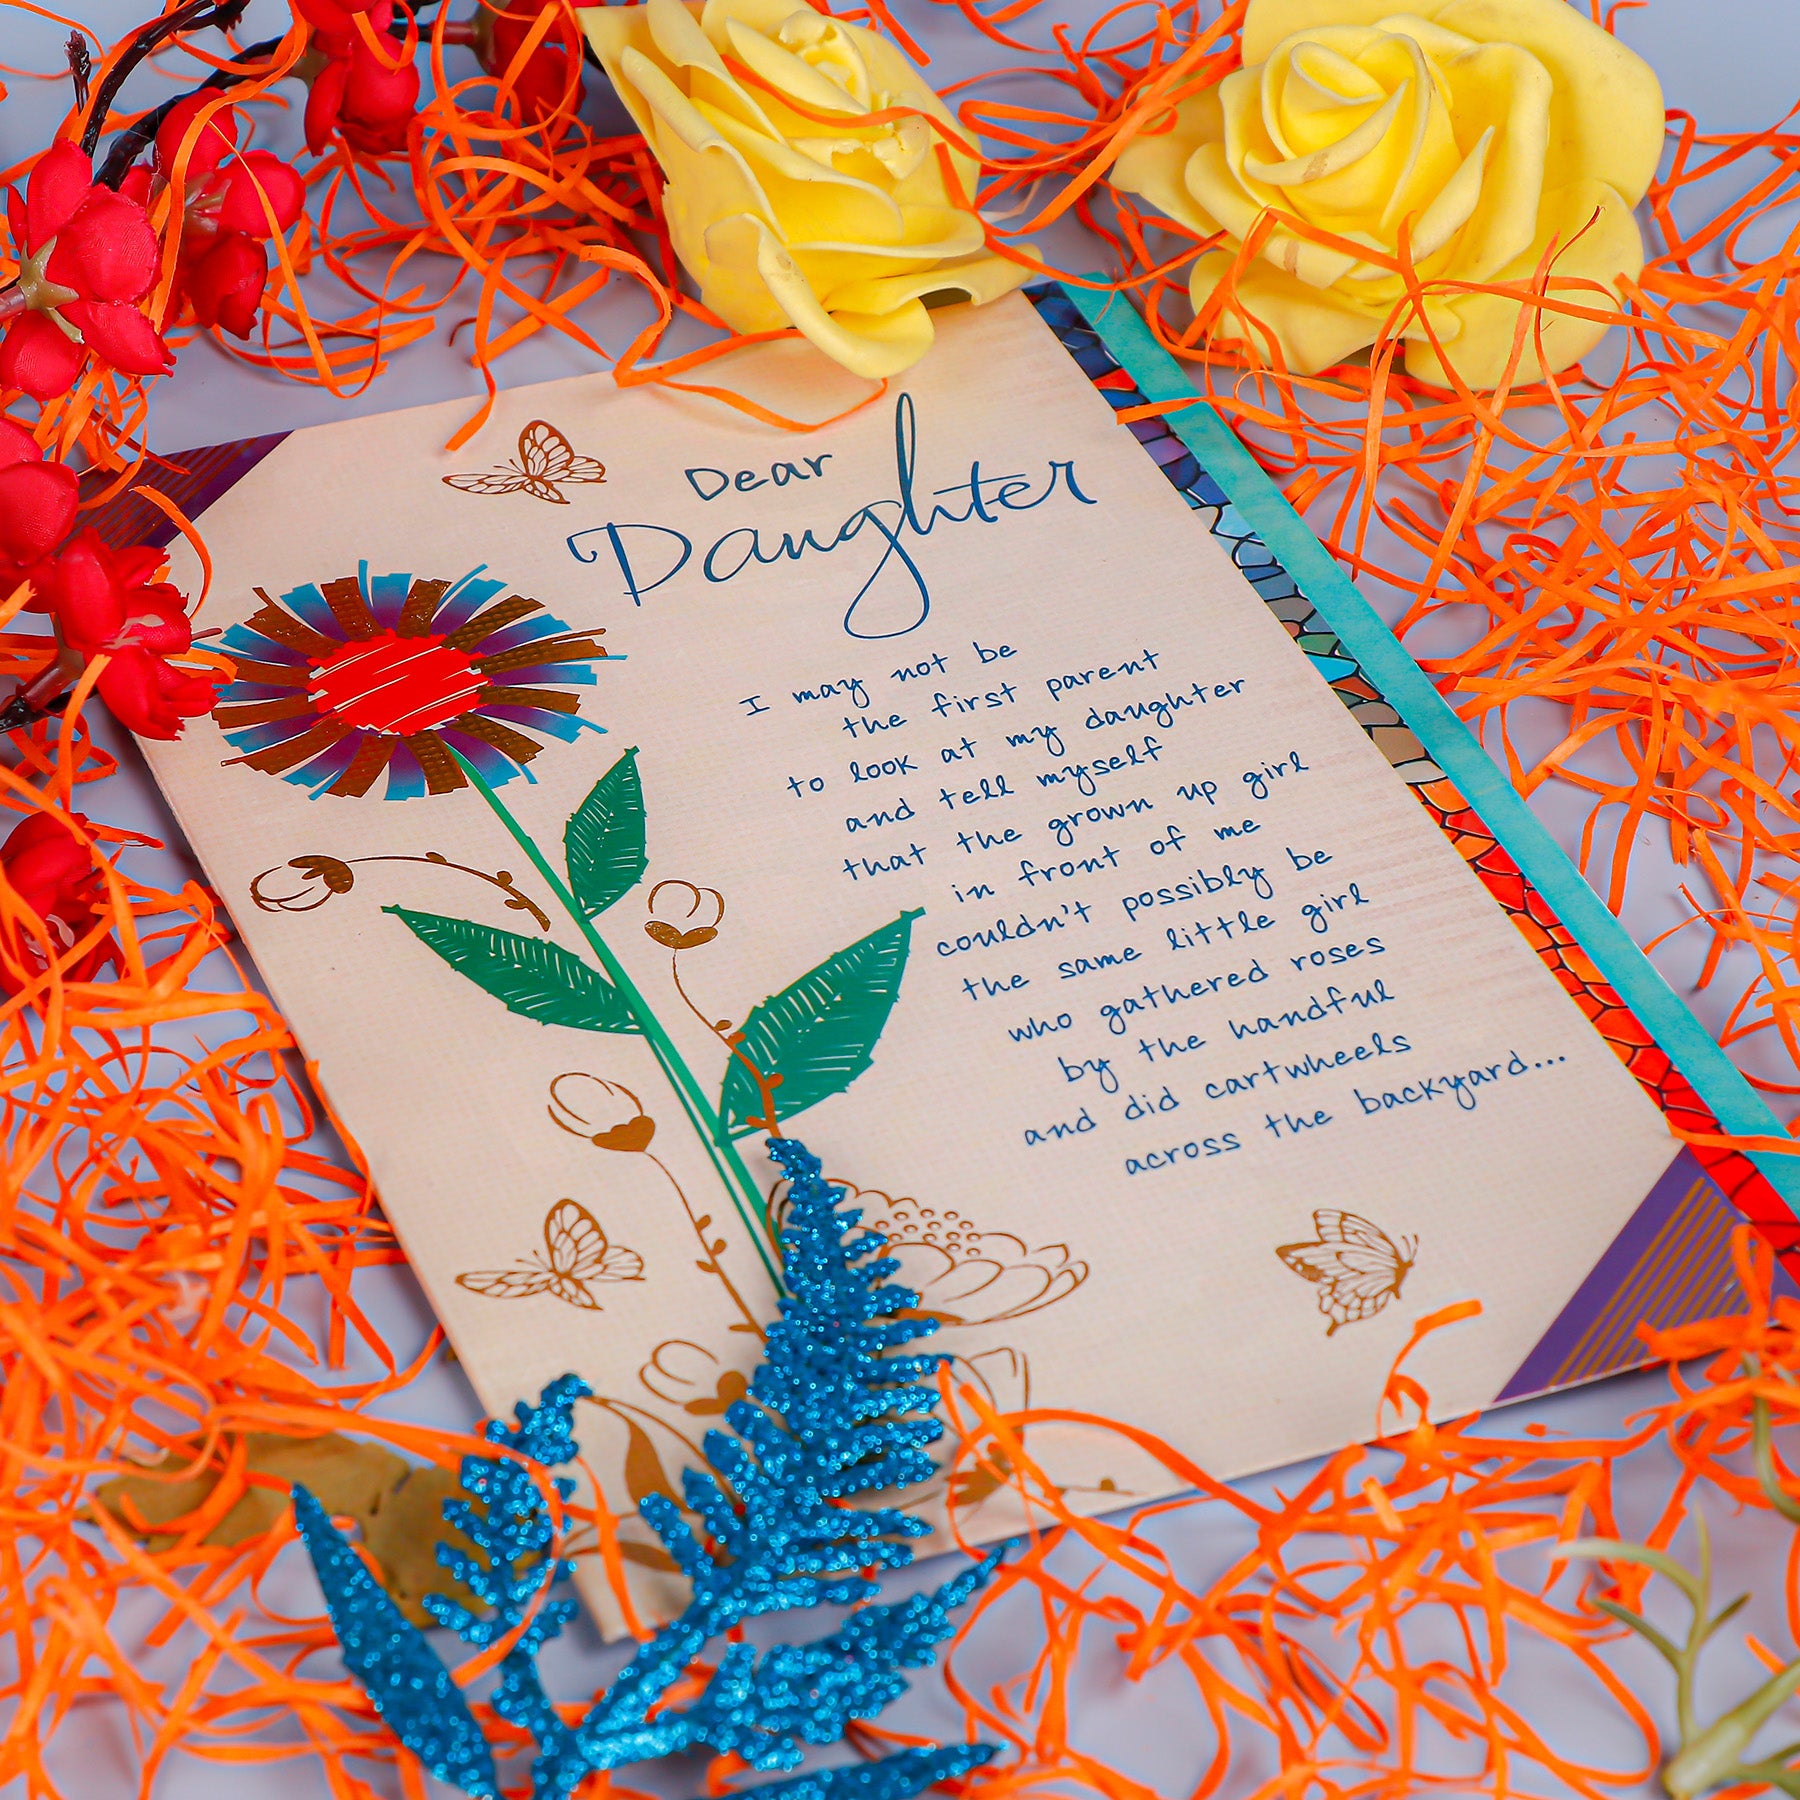 Dear
Daughter
I may not be
the first parent
to look at my daughter
and tell myself
that the grown up girl
in front of me
couldn't possibly be
the same little girl
who gathered roses
by the handful
and did cartwheels
across the backyard...